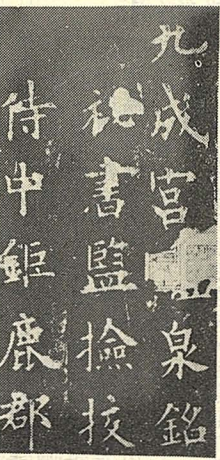 九成宮泉銘
秘書監撿挍
侍中鉅鹿郡